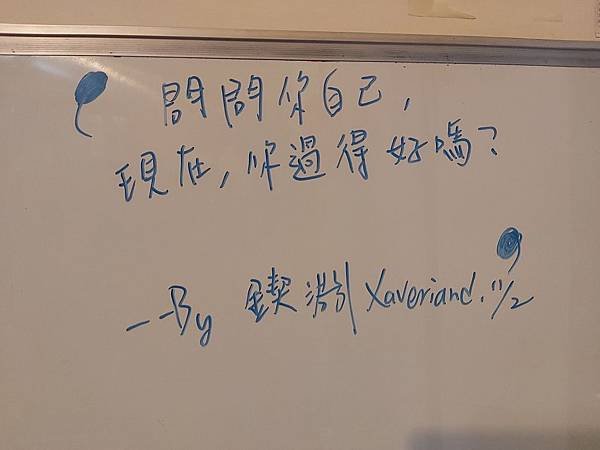 問問你自己,
現在,你過得好嗎?
--By 鍥淵 Xaveriand. 11/2